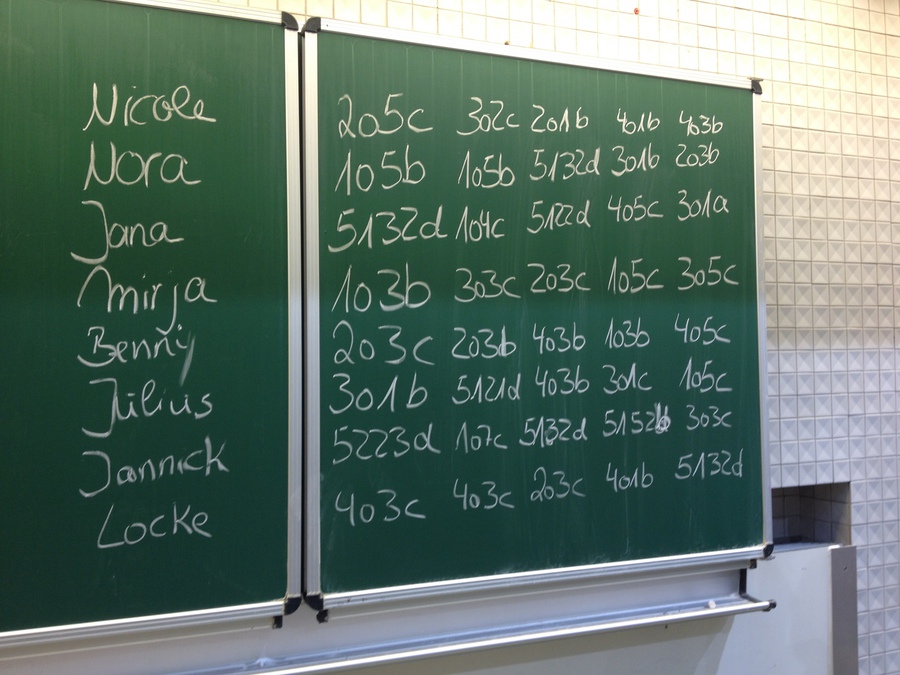 Nicole 205c 302c 201b 401b 403b
Nora 105b 105b 5132d 301b 203b
Jana 5132d 104c 5122d 405c 301a
Mirja 103b 303c 203c 105c 305c
Benni 203c 203b 403b 103b 405c
Julius 301b 5121d 403b 301c 105c
Jannick 5223d 107c 5132d 5152b 303c
Locke 403c 403c 203c 401b 5132d